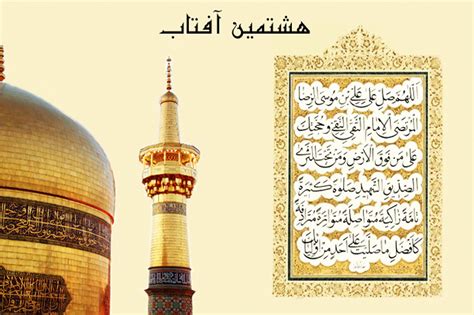 هشتمین آفتاب
اللهم صل علی علی بن موسی الرضا
المرتضی الامام التقی النقی و حجتک
علی من فوق الارض و من تحت الثری
الصدیق الشهید صلوة کثیرة
تامة زاکیة متواصلة متواترة مترادفة
کافضل ما صلیت علی احد من اولیائک